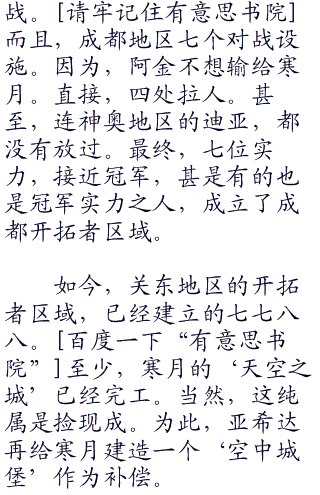 战。[请牢记住有意思书院]
而且，成都地区七个对战设
施。因为，阿金不想输给寒
月。直接，四处拉人。甚
至，连神奥地区的迪亚，都
没有放过。最终，七位实
力，接近冠军，甚是有的也
是冠军实力之人，成立了成
都开拓者区域。
如今，关东地区的开拓
者区域，已经建立的七七八
八。[百度一下“有意思书
院”]至少，寒月的‘天空之
城’已经完工。当然，这纯
属是捡现成。为此，亚希达
再给寒月建造一个‘空中城
堡’作为补偿。